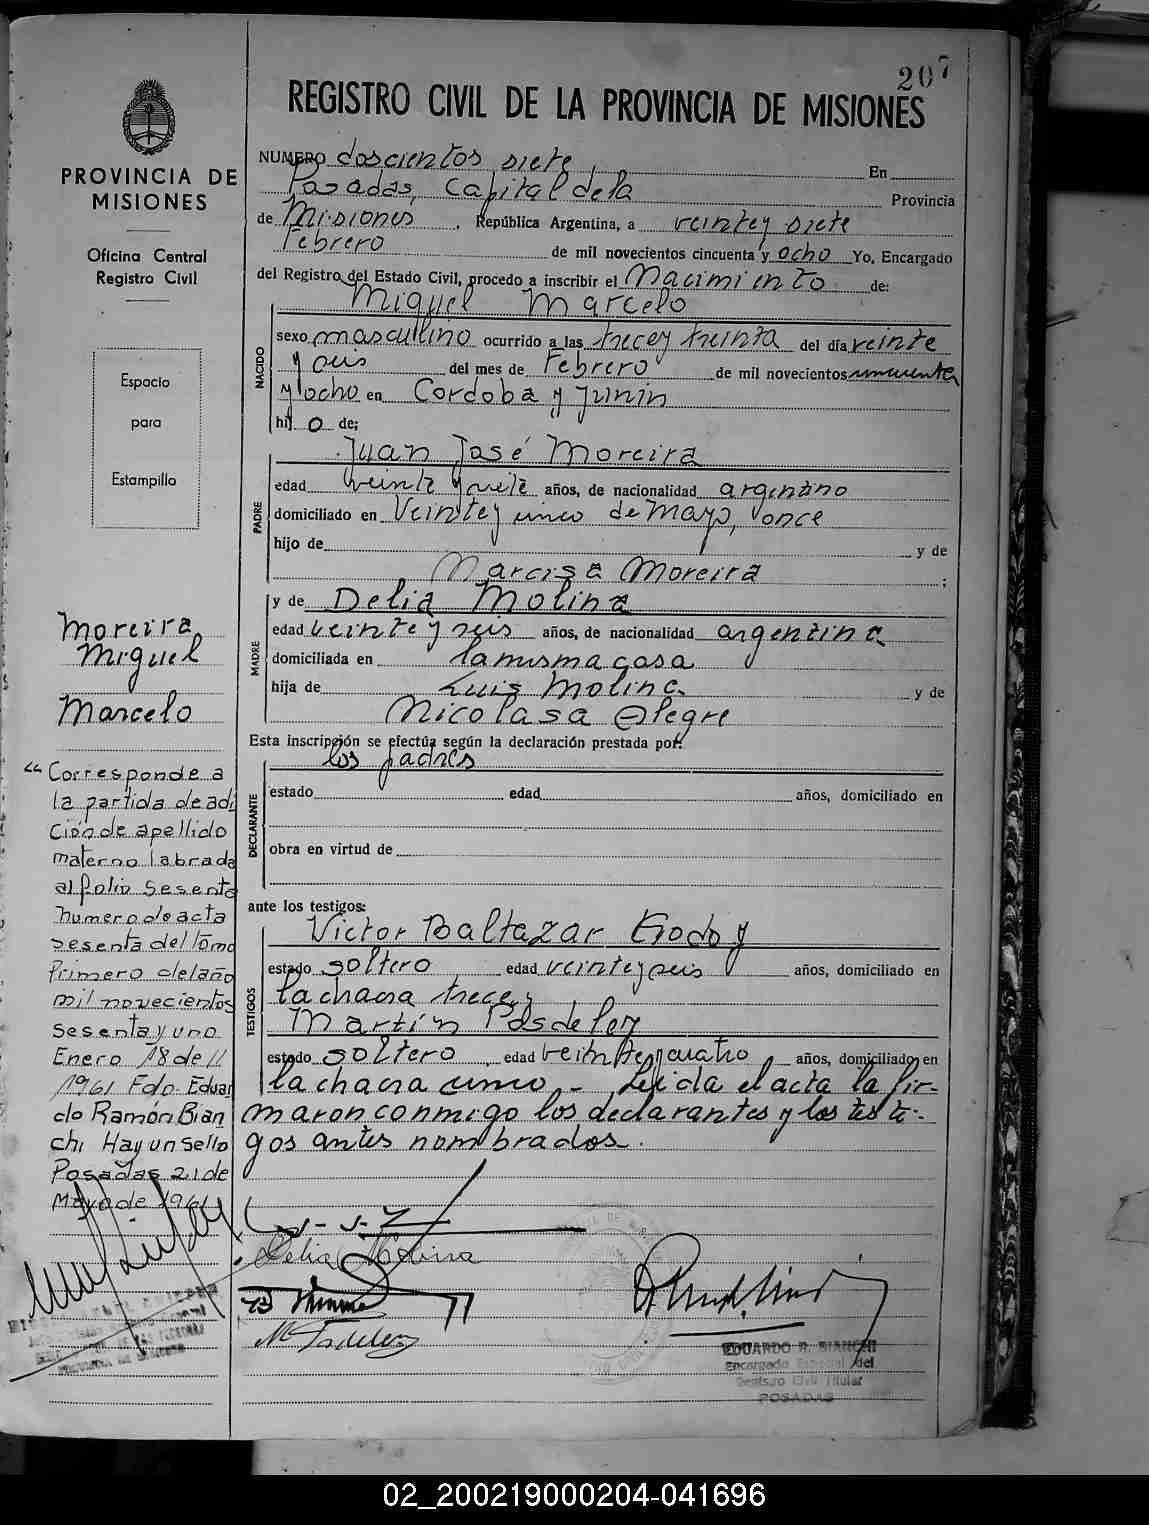 207
REGISTRO CIVIL DE LA PROVINCIA DE MISIONES
PROVINCIA DE
MISIONES
Oficina Central
Registro Civil
Espacio
para
Estampilla
NUMERO doscientos siete En
Posadas, Capital de la Provincia
de Misiones, República Argentina, a veinte y siete
Febrero de mil novecientos cincuenta y ocho Yo, Encargado
del Registro del Estado Civil, procedo a inscribir el Nacimiento de:
Miguel Marcelo
NACIDO
sexo masculino ocurrido a las trece y treinta del día veinte
y seis del mes de Febrero de mil novecientos cincuenta
y ocho en Cordoba y Junin
hij o de;
Juan José Moreira
PADRE
edad veinte y siete años, de nacionalidad argentino
domiciliado en Veinte y uno de Mayo, once
hijo de y de
Narcisa Moreira ;
MADRE
y de Delia Molina
edad veinte y seis años, de nacionalidad argentina
domiciliada en la misma casa
hija de Luis Molina y de
Nicolasa Alegre
Esta inscripción se efectúa según la declaración prestada por:
los padres
DECLARANTE
estado edad años, domiciliado en
obra en virtud de
ante los testigos:
Victor Baltazar Godoy
TESTIGOS
estado soltero edad veinte y seis años, domiciliado en
la chacra trece y
Martin Posdeley
estado soltero, edad veinte y cuatro años, domiciliado en
la chacra cinco - Leida el acta la fir-
maron conmigo los declarantes y los testi-
gos antes nombrados.
Moreira
Miguel
Marcelo
"Corresponde a
la partida de adi
ción de apellido
materno labrada
al folio sesenta
numero de acta
sesenta del tomo
Primero del año
mil novecientos
sesenta y uno
Enero 18 de //
1961 Fdo. Eduar
do Ramón Bian
chi Hay un sello
Posadas 21 de
Mayo de 1961
Delia Molina
EDUARDO R. BIANCHI
Encargado del
Registro Civil Titular
POSADAS
02_200219000204-041696